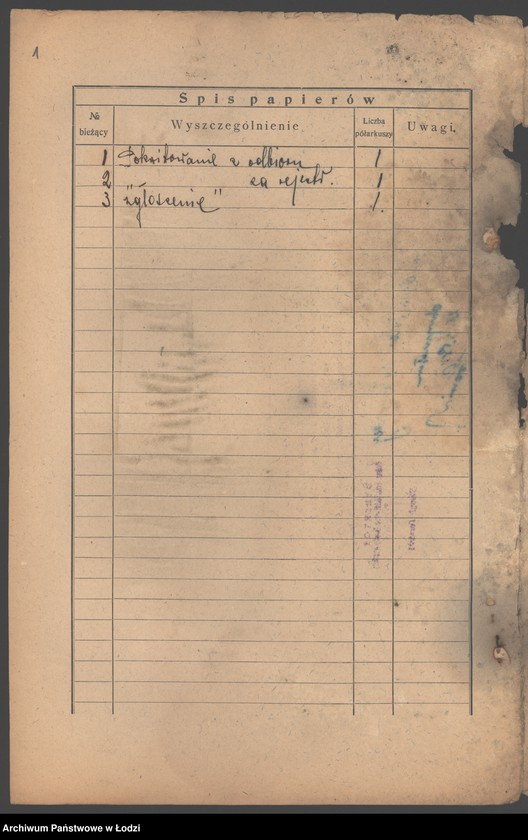 1
Spis papierów
№ bieżący Wyszczególnienie Liczba półarkuszy Uwagi.
1 Pokwitowanie z odbioru 1
2 " za rejestr. 1
3 "zgłoszenie" 1.
Archiwum Państwowe w Łodzi